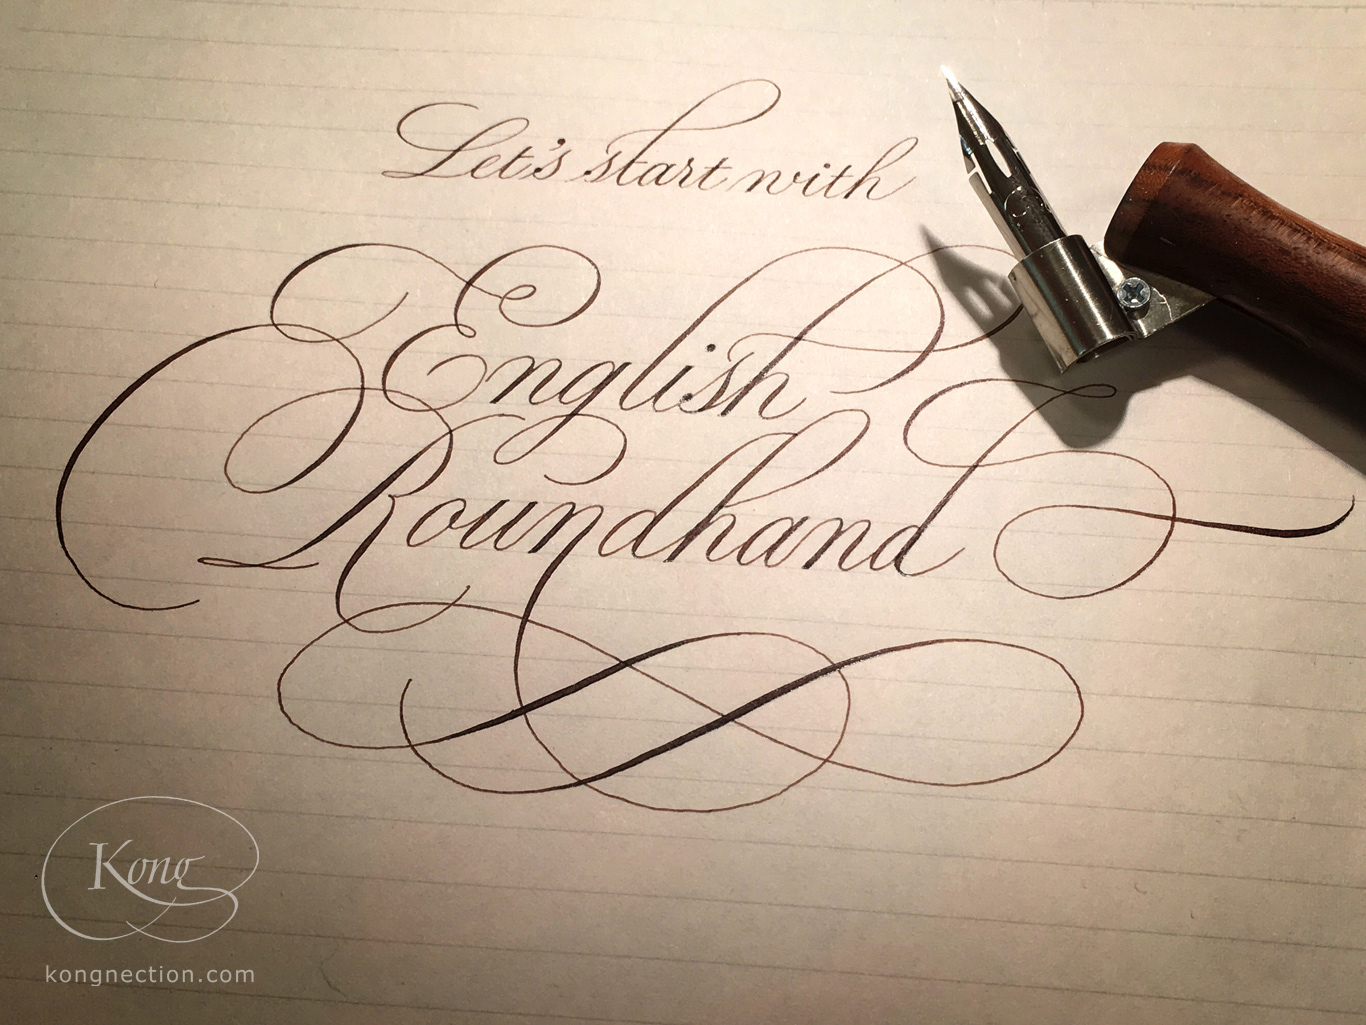 Let's start with
English
Roundhand
Kong
kongnection.com